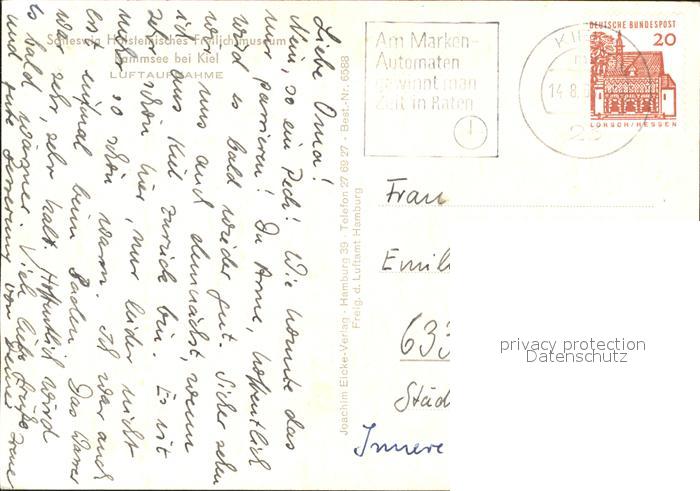 Schleswig Holsteinisches Freilichtmuseum
Rammsee bei Kiel
LUFTAUFNAHME
Liebe Oma!
Nein, so ein Pech! Wie konnte das
nur passieren! Du Arme, hoffentlich
wird es bald wieder gut. Sicher sehen
wir uns auch demnächst, wenn
ich aus Kiel zurück bin. Es ist
schön hier, nur leider nicht
mehr so schön warm. Ich war auch
erst einmal beim Baden. Das Wasser
war sehr, sehr kalt. Hoffentlich wird
es bald wärmer. Viele liebe Grüße
und gute Besserung von Deiner
Joachim Eicke-Verlag · Hamburg 39 · Telefon 27 69 27 · Best.-Nr. 6588
Freig. d. Luftamt Hamburg
Am Marken-
Automaten
gewinnt man
Zeit in Raten
KIEL
14.8.
23
DEUTSCHE BUNDESPOST
20
LORSCH/HESSEN
Frau
Emil
633
Städ
Innere
privacy protection
Datenschutz